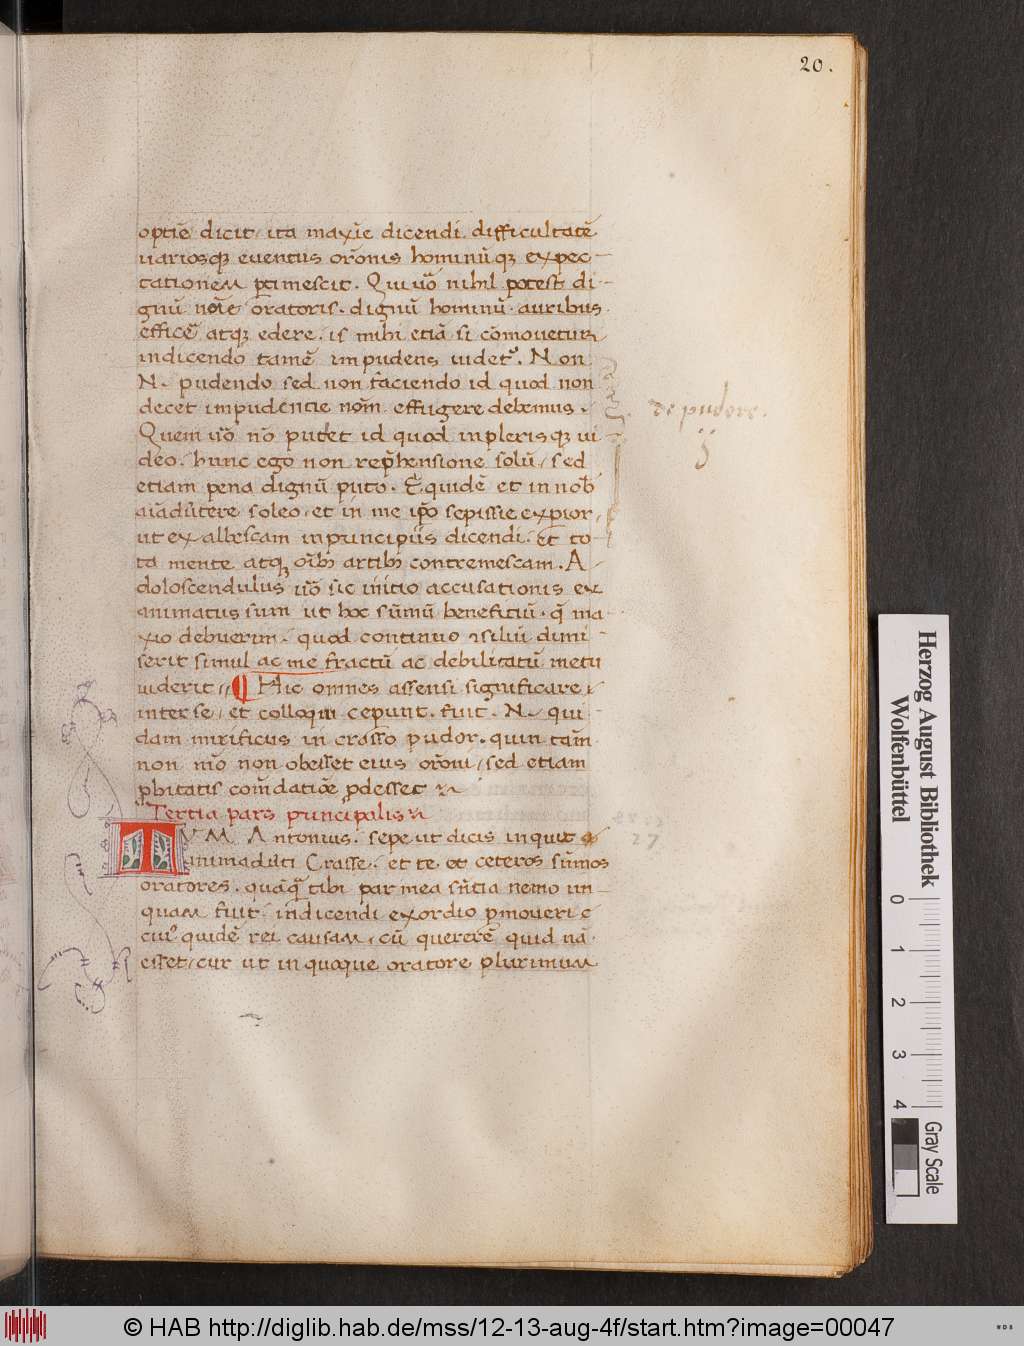 20.
optīe dicit, ita maxīe dicendi difficultatē
uariosqꝫ euentus orōnis hominūqꝫ expec-
tationem ꝑtimescit. Qui uō nihil potest di-
gnū noīe oratoris. dignū hominū auribus
efficē atqꝫ edere. is mihi etiā si cōmouetur
indicendo tamē impudens uidetʳ. Non
N. pudendo sed non faciendo id quod non
decet impudentie nōm effugere debemus.
de pudore.
Quem uō nō pudet id quod inplerisqꝫ ui-
deo. hunc ego non rep̄hensione solū, sed
etiam pena dignū puto. Equidē et in nob̄
aīaduertere soleo, et in me ip̄o sepissīe experior,
ut exalbescam inprincipiis dicendi. et to-
ta mente atqꝫ oīb artibꝫ contremescam. A-
doloscendulus uō sic initio accusationis ex
animatus sum ut hoc sūmū beneficiū. q̄ ma-
xīo debuerim. quod continuo ꝯsiliū dimi-
serit simul ac me fractū ac debilitatū metu
uiderit, Hic omnes assensi significare
inter se, et colloqui cepunt. fuit. N. qui-
dam mirificus in crasso pudor. quin tam̄
non mō non obesset eius orōni, sed etiam
ꝓbitatis com̄datiōe ꝓdesset
Tertia pars principalis
TVM Antonius. sepe ut dicis inquit
27
animaduti Crasse. et te et ceteros sūmos
oratores. quāq̄ tibi par mea sn̄tia nemo un-
quam fuit indicendi exordio ꝑmoueri
cuiꝰ quidē rei causam, cū quererē quid nā
esset, cur ut in quoque oratore plurimum
Herzog August Bibliothek
Wolfenbüttel
0 1 2 3 4
Gray Scale
© HAB http://diglib.hab.de/mss/12-13-aug-4f/start.htm?image=00047